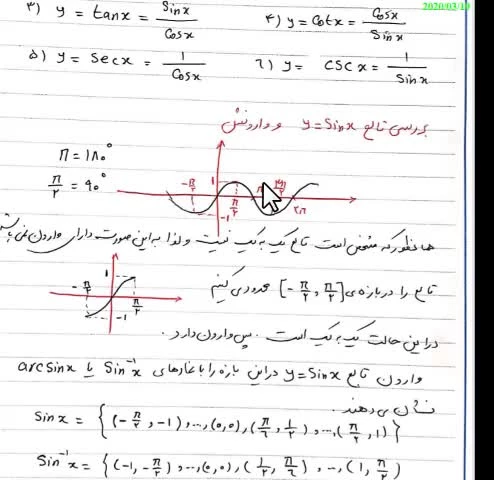 2020/03/10
۳) y = tanx = Sinx / Cosx    ۴) y = Cotx = Cosx / Sinx
۵) y = Secx = 1 / Cosx    ۶) y = CSC x = 1 / Sinx
بررسی تابع y = Sinx و وارونش
π = ۱۸۰°
π/۲ = ۹۰°
-π/۲ 1 -1 π/۲ π ۳π/۲ ۲π
همانطور که مشخص است تابع یک به یک نیست و لذا به این صورت دارای وارون نمی باشد
تابع را در بازه ی [-π/۲, π/۲] محدود می کنیم
-π/۲ 1 π/۲ -1
در این حالت یک به یک است. پس وارون دارد.
وارون تابع y = Sinx در این بازه را با نمادهای Sin⁻¹x یا arcSinx
نشان می دهند.
Sinx = {(-π/۲, -1), ..., (0,0), (π/۶, 1/۲), ..., (π/۲, 1)}
Sin⁻¹x = {(-1, -π/۲), ..., (0,0), (1/۲, π/۶), ..., (1, π/۲)